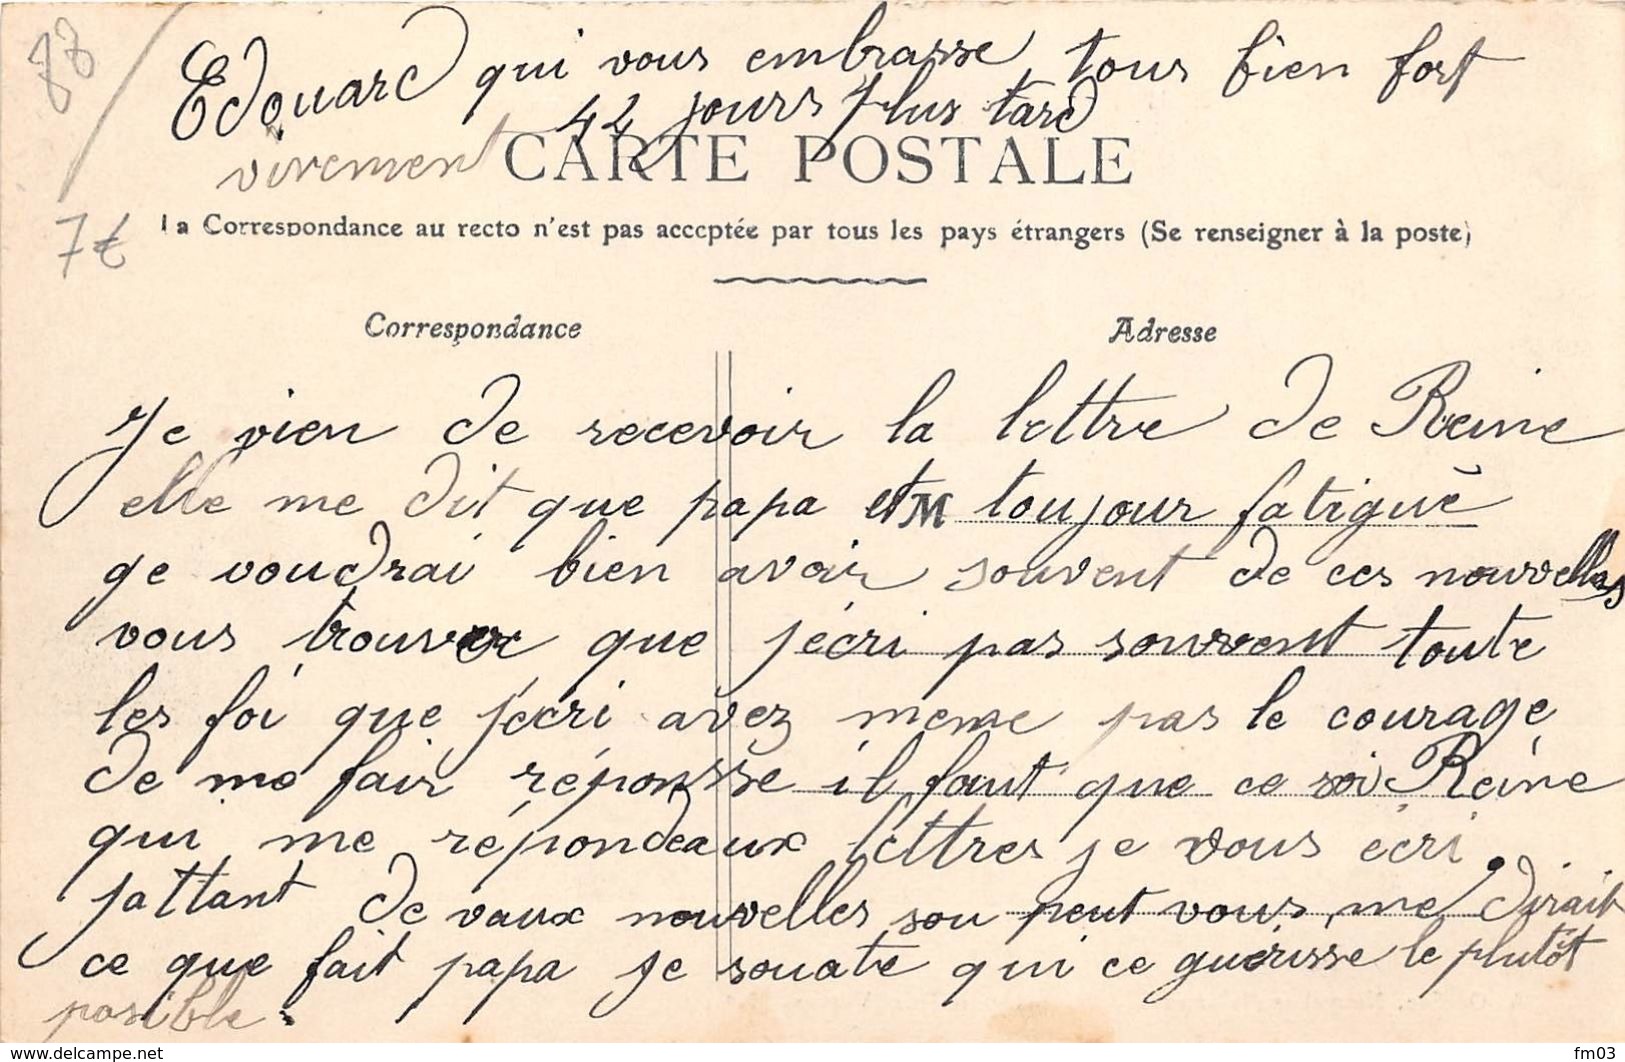 78
Edouard qui vous embrasse tous bien fort
42 jours plus tard
vivement
CARTE POSTALE
7€
La Correspondance au recto n'est pas acceptée par tous les pays étrangers (Se renseigner à la poste)
Correspondance
Adresse
Je vien de recevoir la lettre de Reine
elle me dit que papa et toujour fatiguè
ge voudrai bien avoir souvent de ces nouvelles
vous trouver que j'écri pas souvent toute
les foi que j'écri avez meme pas le courage
de me fair réponsse il faut que ce soi Reine
qui me répondeaux lettres je vous écri.
jattant de vaux nouvelles sou peut vous me dirait
ce que fait papa je souate qui ce guérisse le plutôt
posible.
www.delcampe.net
fm03